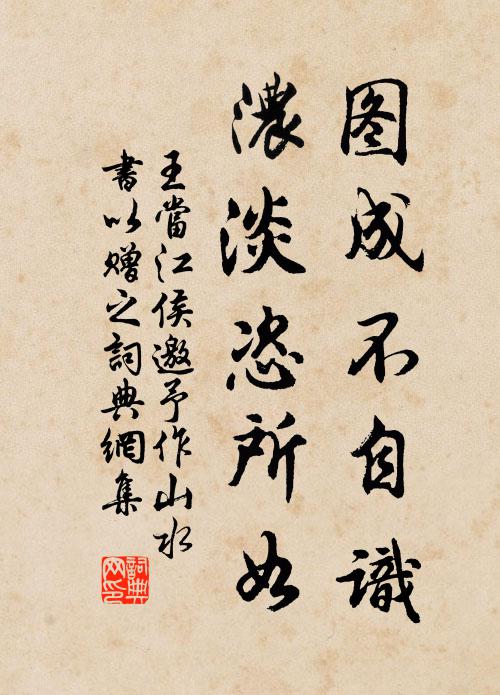 图成不自識
濃淡恣所如
王當江侯邀予作山水
書以贈之詞典網集
詞典
网印